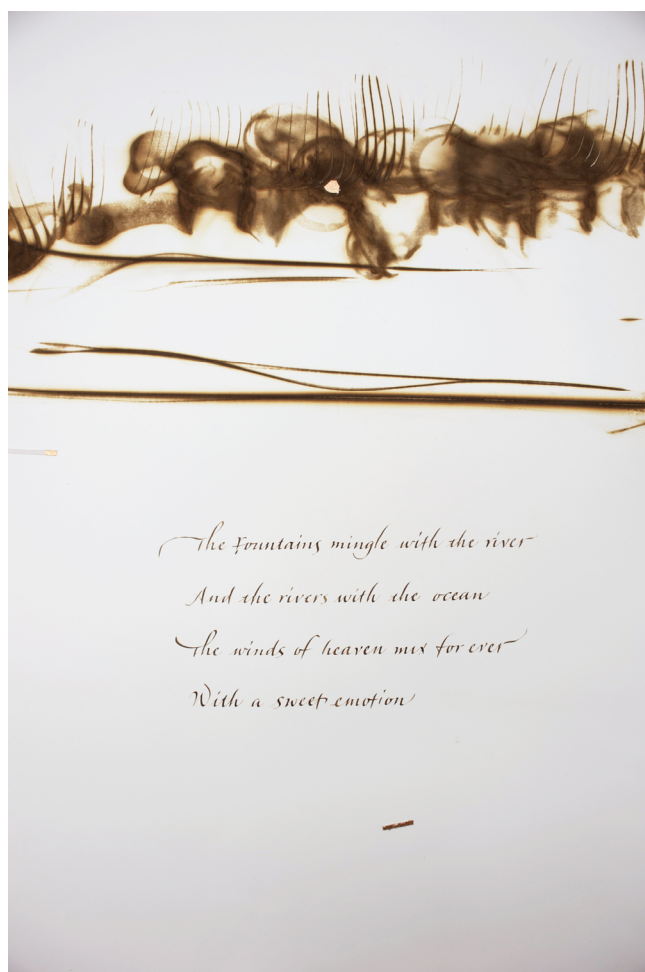 The Fountains mingle with the river
And the rivers with the ocean
The winds of heaven mix for ever
With a sweet emotion